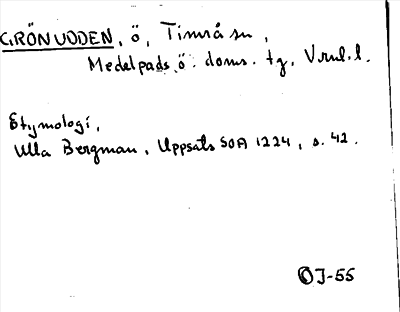 GRÖNUDDEN, ö, Timrå sn,
Medelpads ö. doms. tg, Vrnl. l.
Etymologi,
Ulla Bergman, Uppsats SOA 1224, s. 42.
OJ-55